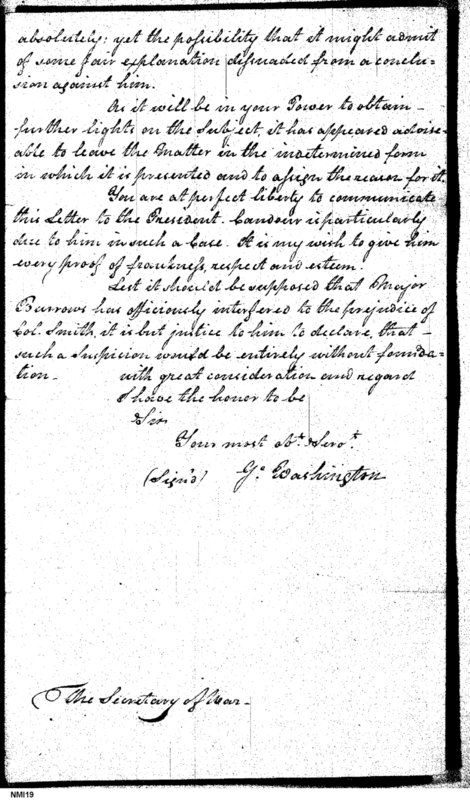 absolutely: yet the possibility that it might admit
of some fair explanation dissuaded from a conclu=
sion against him.
As it will be in your Power to obtain
further lights on the subject, it has appeared advise=
able to leave the Matter in the indetermined form
in which it is presented and to assign the reason for it.
You are at perfect liberty to communicate
this Letter to the President. Candour is particularly
due to him in such a Case. It is my wish to give him
every proof of frankness, respect and esteem.
Lest it should be supposed that Major
Burrows has officiously interfered to the prejudice of
Col. Smith, it is but justice to him to declare, that
such a suspicion would be entirely without founda=
tion. with great consideration and regard
I have the honor to be
Sir
Your most obt. Servt.
(Sign'd) Go. Washington
The Secretary of War.
NMI19